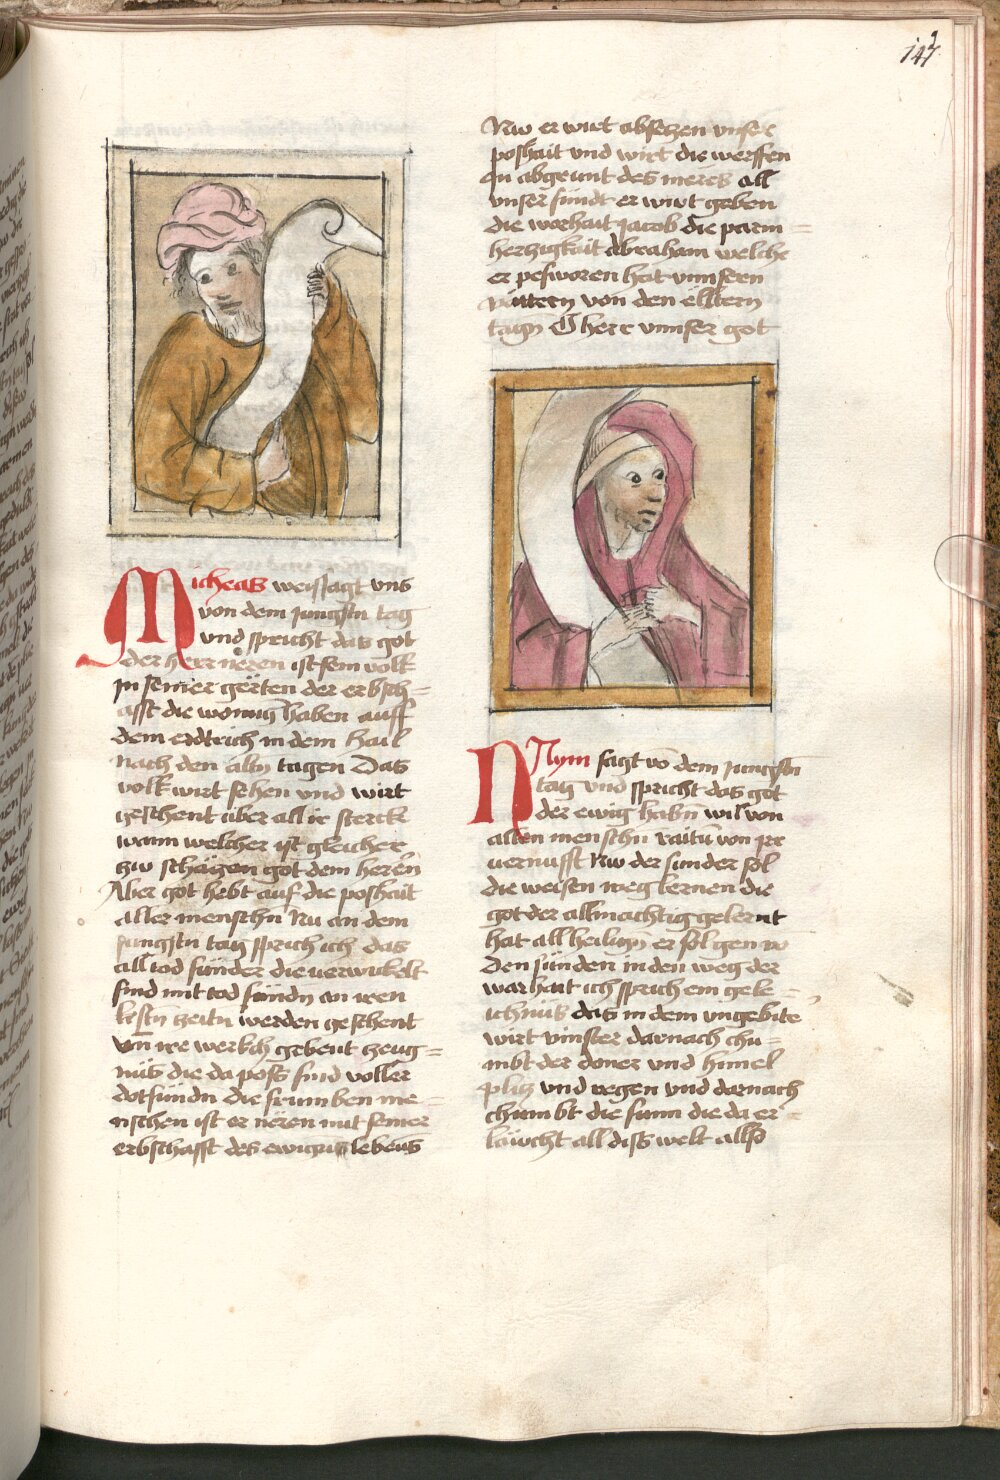 147
Micheas weissagt uns
von dem jungstn tag
und spricht das got
der herr neren ist sein volk
jn seiner gerten der erbsch=
afft die wonung haben auff
dem erdtrich in dem hail
nach den altn tagen Das
volk wirt sehen und wirt
geschent uber all ir sterck
wann welcher ist gleicher
zw schäczen got dem herren
Aber got hebt auf die poshait
aller menschn Nu an dem
jungstn tag sprich ich das
all tod sunder die verwickelt
sind mit tod sundn an iren
lestn zeitn werden geschent
vn ire werkch gebent zeug=
nüs die da poss sind voller
dotsundn die frumben me=
nschen ist er neren mit seiner
erbschafft des ewigen lebens
Nw er wirt absetzen unser
poshait und wirt die werffen
in abgrunt des meres all
unser sundt er wirt geben
die warhait Jacob die parm=
herzigkait Abraham welche
er pesworen hat unnsern
vättern von den elltern
tagn O herr unnser got
Naym sagt vo dem jungstn
tag und spricht das got
der ewig habn wil von
allen menschn raitu von ire
vernufft Nw der sunder sol
die weisen weg lernen die
got der allmachtig gelernt
hat all heilign er sol gen vo
Den sunden in den weg der
warhait ich sprich ein gele=
ichnüs das in dem ungebite
wirt vinster darnach chu=
mbt der doner und himel
pliz und regen und darnach
chumbt die sunn die da er=
läucht all diss welt allso